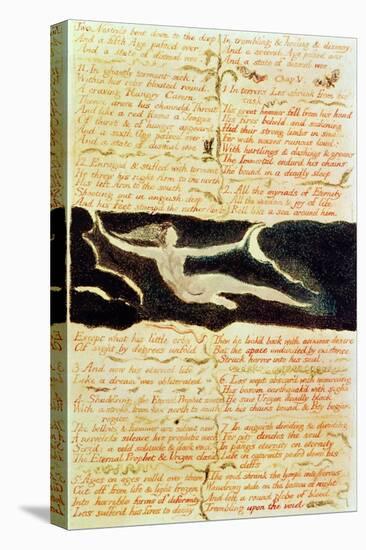 Two Nostrils bent down to the deep
And a fifth Age passed over
And a state of dismal woe
11. In ghastly torment sick;
Within his ribs bloated round,
A craving Hungry Cavern
Thence arose his channeld Throat
And like a red flame a Tongue
Of thirst & of hunger appeard
And a sixth Age passed over
And a state of dismal woe
12. Enraged & stifled with torment
He threw his right Arm to the north
His left Arm to the south
Shooting out in anguish deep
And his Feet stampd the nether
Except what his little orbs
Of sight by degrees unfold
3. And now his eternal life
Like a dream was obliterated
4. Shuddering, the Eternal Prophet smote
With a stroke, from his north to south
region
The bellows & hammer are silent now
A nerveless silence, his prophetic voice
Siezd; a cold solitude & dark void
The Eternal Prophet & Urizen clos'd
5. Ages on ages rolld over them
Cut off from life & light frozen
Into horrible forms of deformity
Los suffer'd his fires to decay
In trembling & howling & dismay
And a seventh Age passed over
And a state of dismal woe
Chap: V.
1. In terrors Los shrunk from his
task:
His great hammer fell from his hand
His fires beheld, and sickening
Hid their strong limbs in smoke
For with noises ruinous loud
With hurtlings & clashings & groans
The Immortal endur'd his chains
Tho bound in a deadly sleep
2. All the myriads of Eternity
All the wisdom & joy of life
Roll like a sea around him
Then he look'd back with anxious desire
But the space undivided by existence
Struck horror into his soul
6. Los wept obscur'd with mourning
His bosom earthquak'd with sighs
He saw Urizen deadly black
In his chains bound, & Pity began
7. In anguish dividing & dividing
For pity divides the soul
In pangs eternity on eternity
Life in cataracts pourd down his
cliffs
The void shrunk the lymph into Nerves
Wandring wide on the bosom of night
And left a round globe of blood
Trembling upon the void